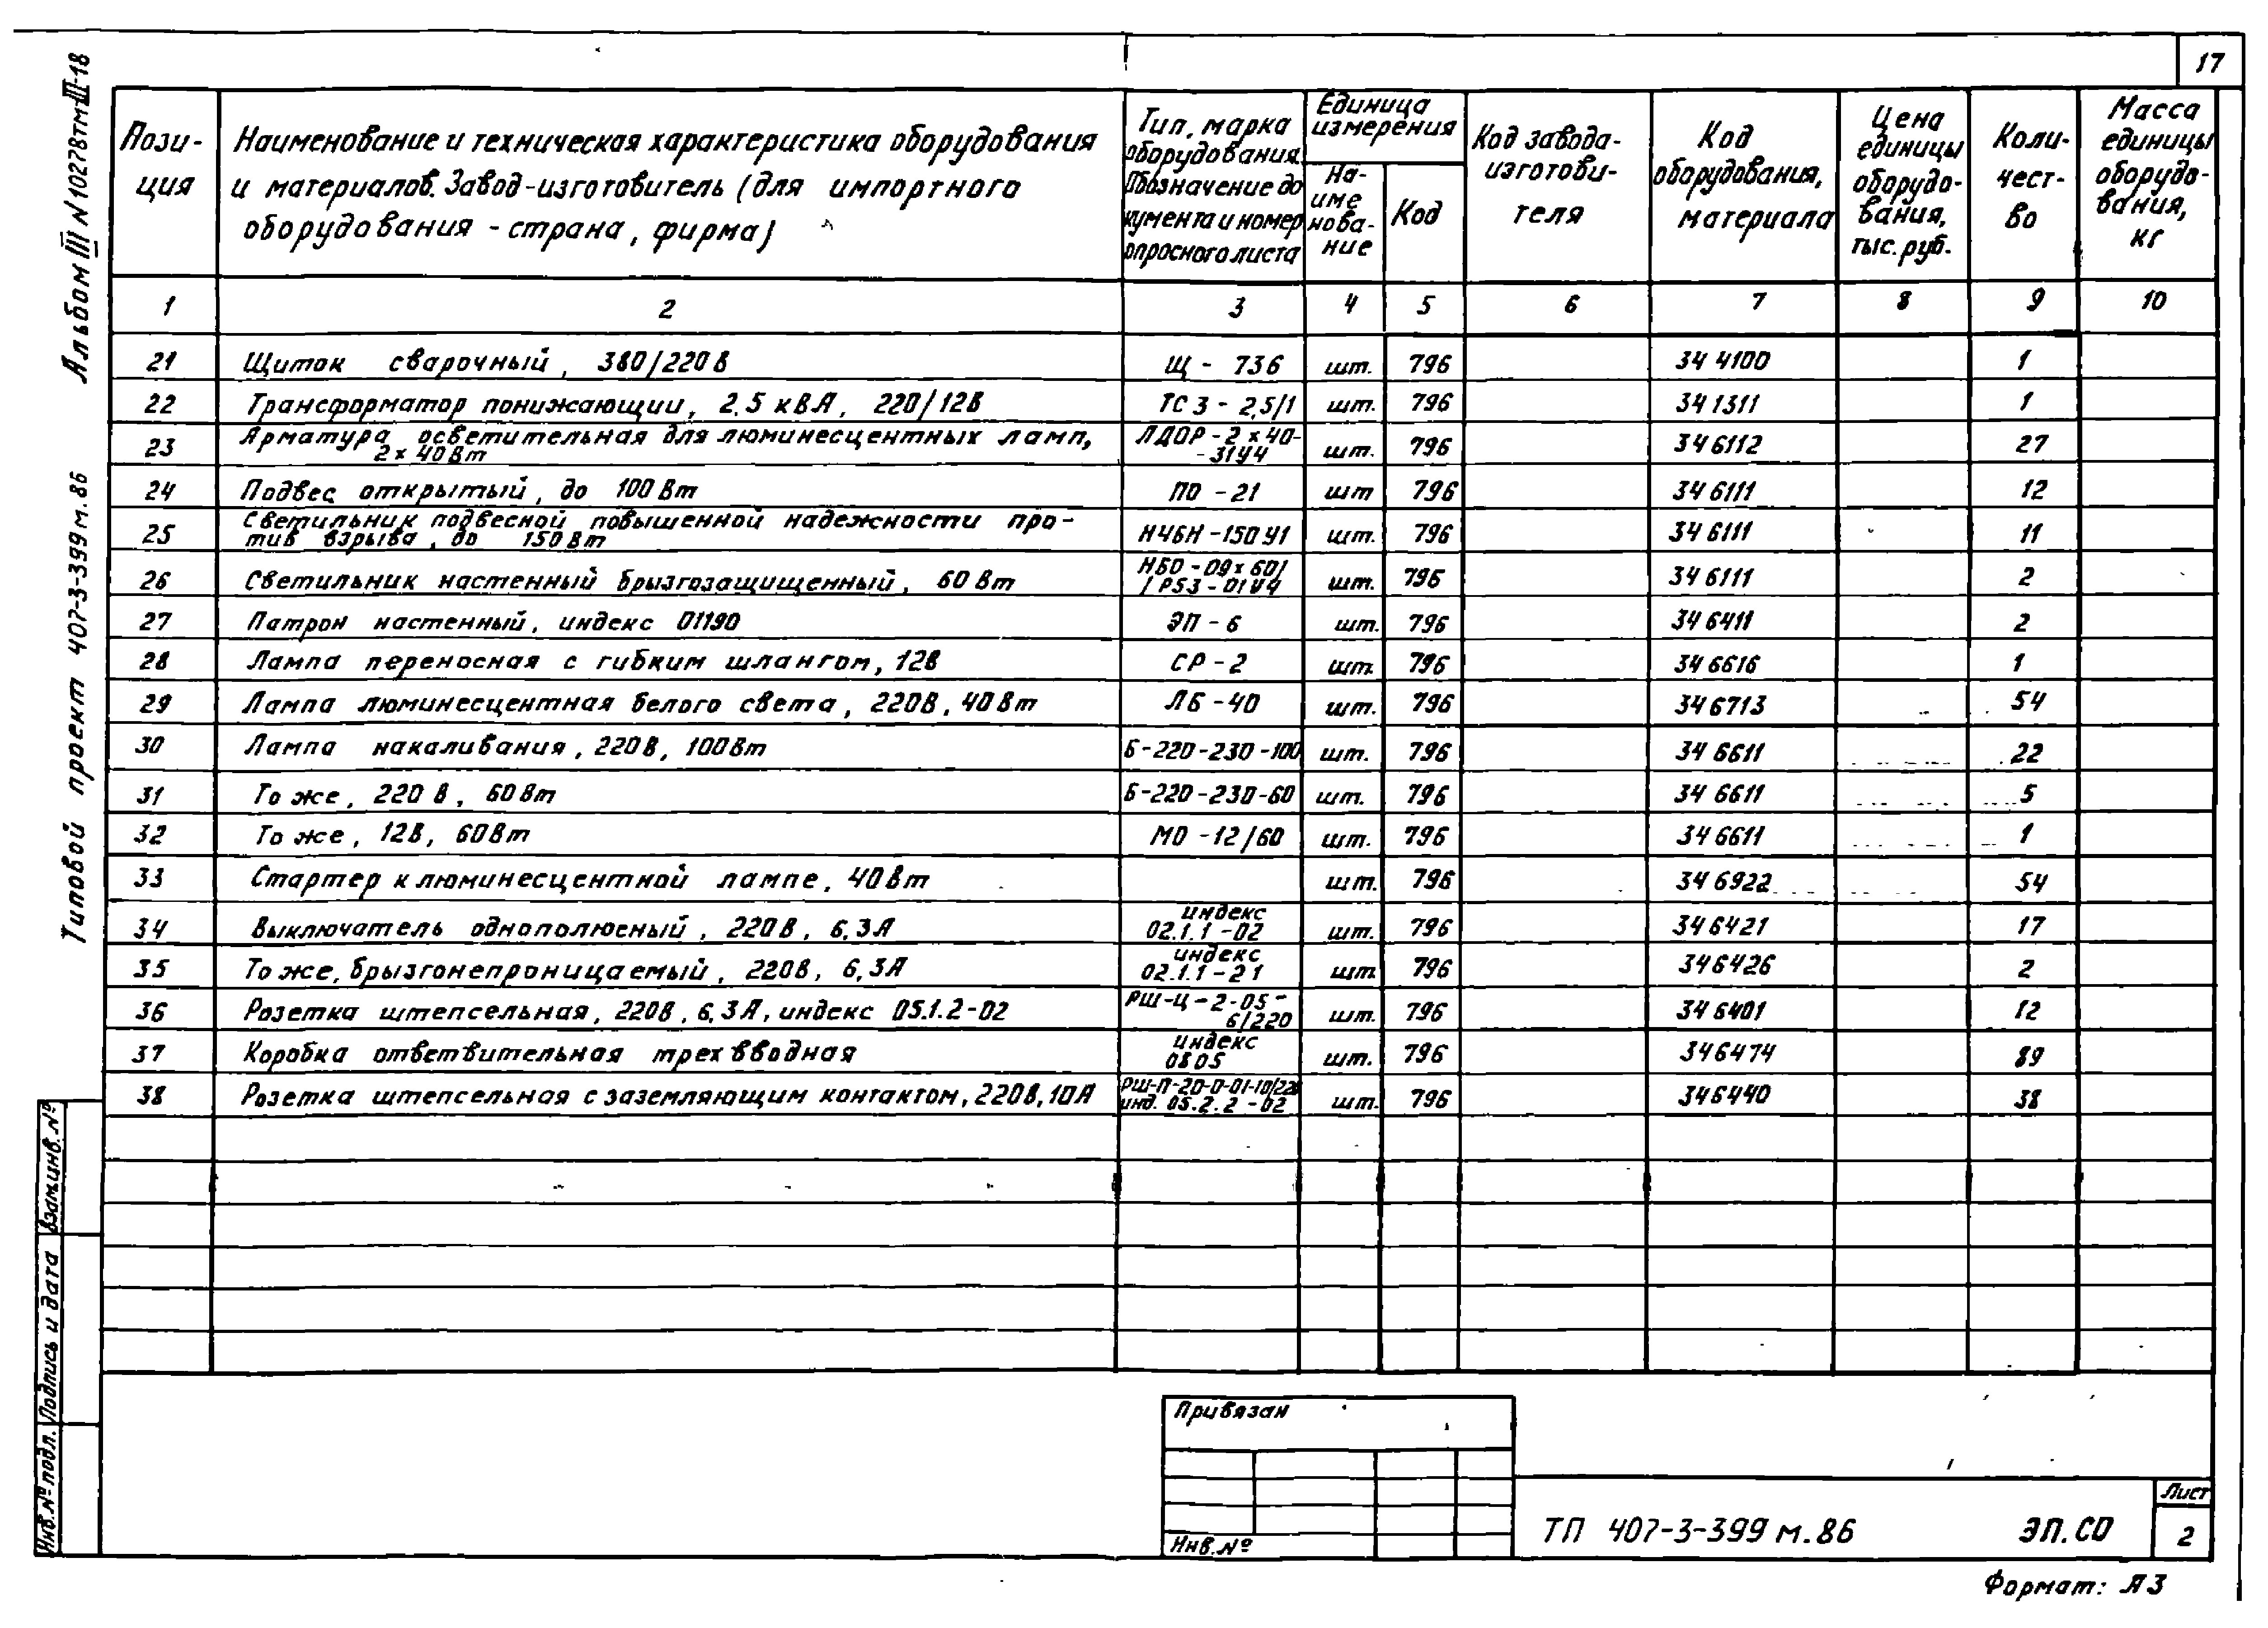 17
Альбом III N 10278тм-III-18
Типовой проект 407-3-399 м.86
Пози-
ция
Наименование и техническая характеристика оборудования
и материалов. Завод-изготовитель (для импортного
оборудования - страна, фирма)
Тип, марка
оборудования.
Обозначение до
кумента и номер
опросного листа
Единица
измерения
На-
име
нова-
ние
Код
Код завода-
изготови-
теля
Код
оборудования,
материала
Цена
единицы
оборудо-
вания,
тыс. руб.
Коли-
чест-
во
Масса
единицы
оборудо-
вания,
кг
1 2 3 4 5 6 7 8 9 10
21 Щиток сварочный, 380/220 В Щ - 736 шт. 796 34 4100 1
22 Трансформатор понижающии, 2,5 кВА, 220/12В ТСЗ - 2,5/1 шт. 796 34 1311 1
23 Арматура осветительная для люминесцентных ламп,
2 х 40 Вт
ЛДОР - 2 х 40-
- 31У4
шт. 796 34 6112 27
24 Подвес открытый, до 100 Вт ПО - 21 шт 796 34 6111 12
25 Светильник подвесной повышенной надежности про-
тив взрыва, до 150 Вт
Н4БН - 150 У1 шт. 796 34 6111 11
26 Светильник настенный брызгозащищенный, 60 Вт
НБО - 09 х 60/
/ Р53 - 01 У4
шт. 796 34 6111 2
27 Патрон настенный, индекс 01190 ЭП - 6 шт. 796 34 6411 2
28 Лампа переносная с гибким шлангом, 12в СР - 2 шт. 796 34 6616 1
29 Лампа люминесцентная белого света, 220В, 40 Вт ЛБ - 40 шт. 796 34 6713 54
30 Лампа накаливания, 220 В, 100 Вт Б-220-230-100 шт. 796 34 6611 22
31 То же, 220 В, 60 Вт Б-220-230-60 шт. 796 34 6611 5
32 То же, 12В, 60 Вт МО - 12/60 шт. 796 34 6611 1
33 Стартер к люминесцентной лампе, 40 Вт шт. 796 34 6922 54
34 Выключатель однополюсный, 220 В, 6,3А
индекс
02.1.1 - 02
шт. 796 34 6421 17
35 То же, брызгонепроницаемый, 220В, 6,3А
индекс
02.1.1 - 21
шт 796 34 6426 2
36 Розетка штепсельная, 220В, 6,3А, индекс 05.1.2-02
РШ-Ц-2-05-
6/220
шт. 796 34 6401 12
37 Коробка ответвительная трехвводная
индекс
0805
шт. 796 34 6474 89
38 Розетка штепсельная с заземляющим контактом, 220В, 10А
РШ-П-20-0-01-10/220
инд. 05.2.2 - 02
шт. 796 34 6440 38
Взам.инв.№
Подпись и дата
Инв.№ подл.
Привязан
Инв.№
ТП 407-3-399 м.86 ЭП.СО
Лист
2
Формат: А3